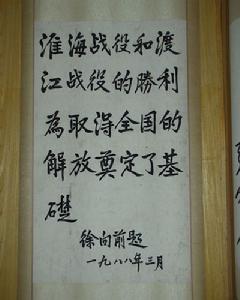 淮海战役和渡
江战役的勝利
為取得全国的
解放奠定了基
礎
徐向前题
一九八八年三月